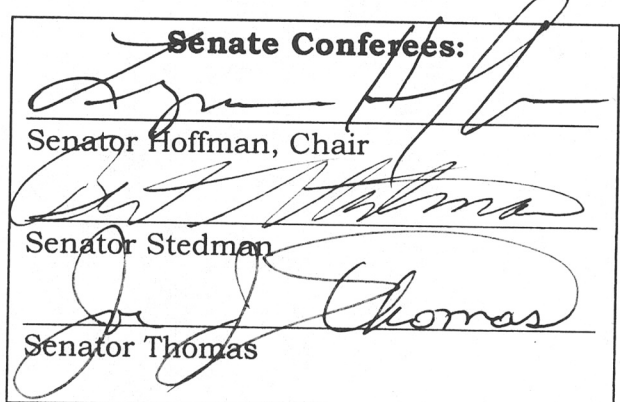 Senate Conferees:
Senator Hoffman, Chair
Bert Stedman
Senator Stedman
Joe J Thomas
Senator Thomas